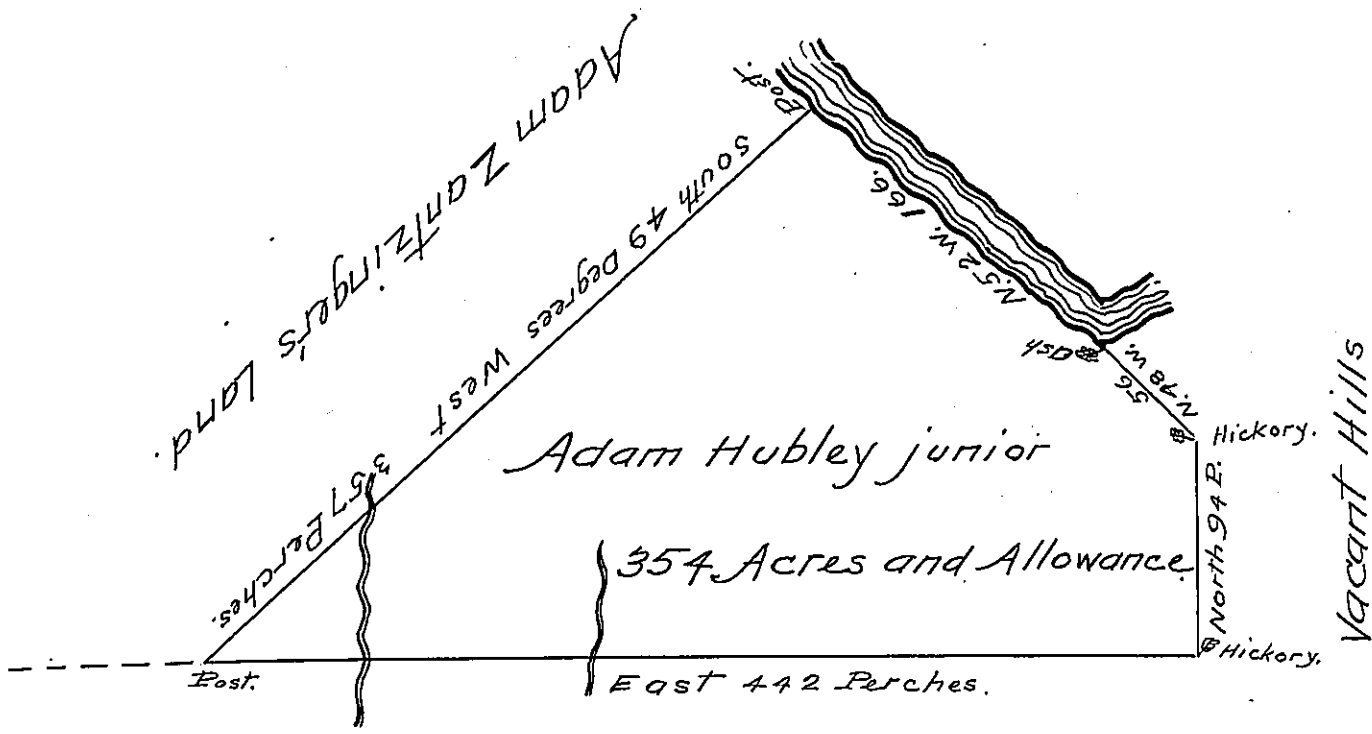 Adam Zantzinger's Land.
South 49 Degrees West
357 Perches.
Post.
N. 52 W. 166.
Ash
N. 48 W.
56
Hickory.
Adam Hubley junior
354 Acres and Allowance
North 94 P.
Vacant Hills
Hickory.
Post.
East 442 Perches.